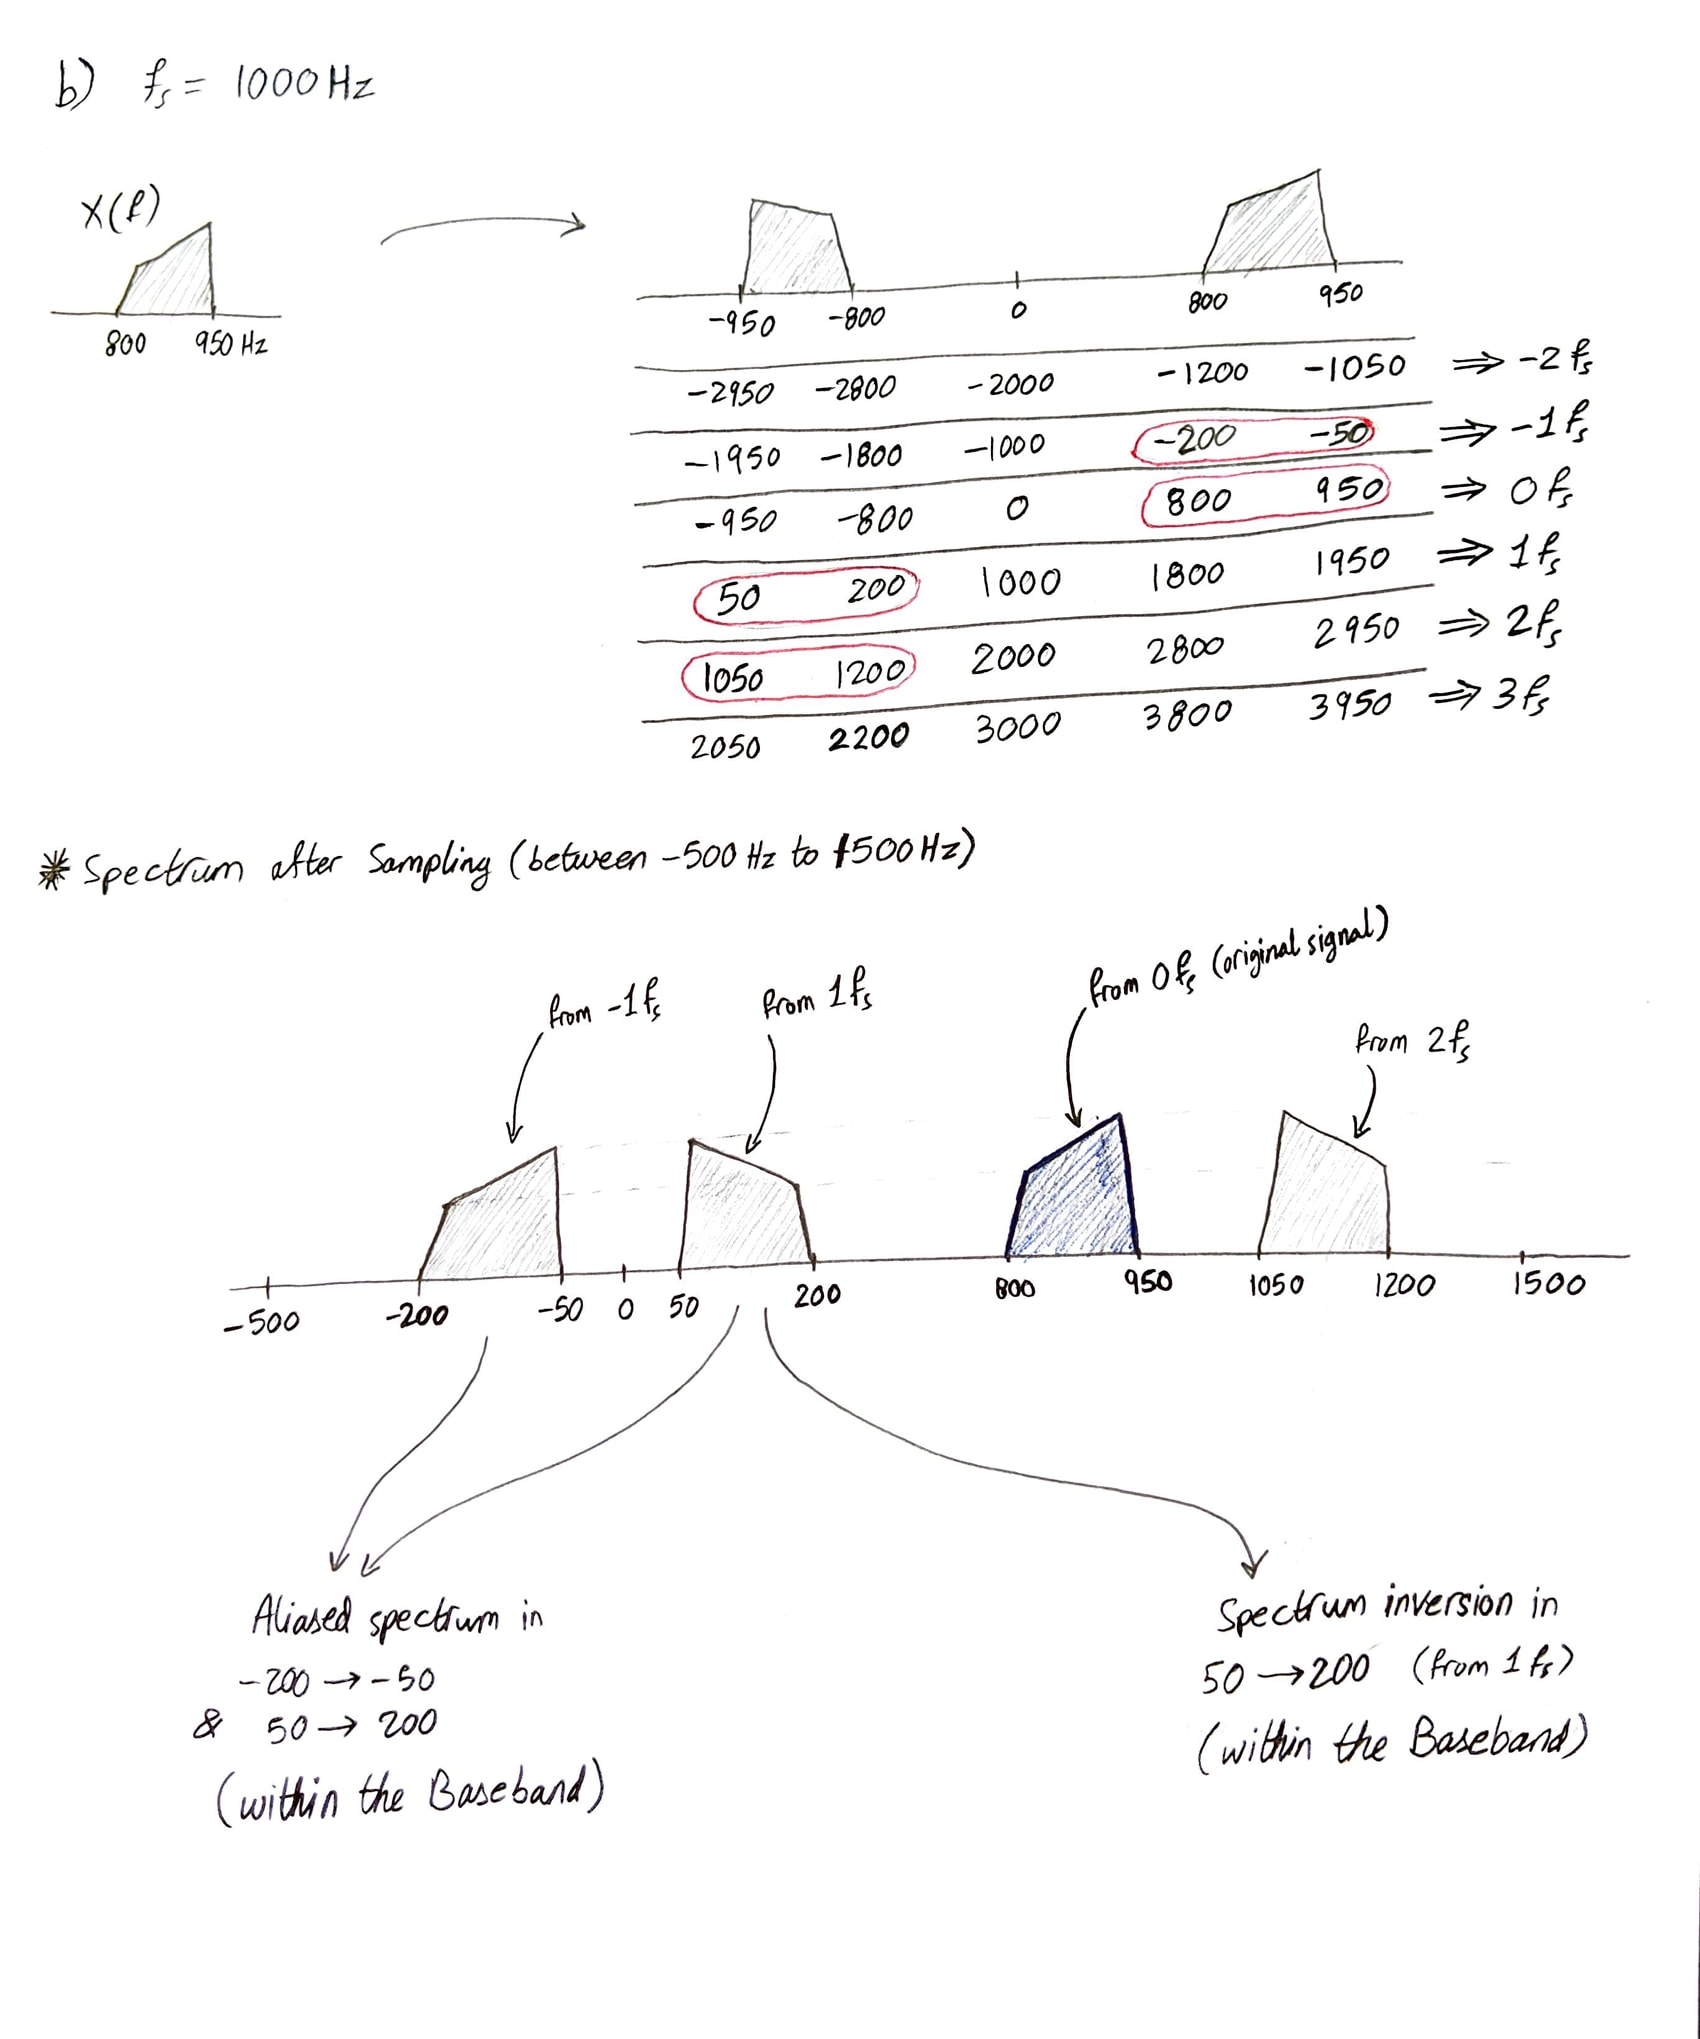 b) fs = 1000 Hz
X(f)
800 950 Hz
-950 -800 0 800 950
-2950 -2800 -2000 -1200 -1050 ⇒ -2fs
-1950 -1800 -1000 -200 -50 ⇒ -1fs
-950 -800 0 800 950 ⇒ 0fs
50 200 1000 1800 1950 ⇒ 1fs
1050 1200 2000 2800 2950 ⇒ 2fs
2050 2200 3000 3800 3950 ⇒ 3fs
* Spectrum after Sampling (between -500 Hz to 1500 Hz)
from -1fs
from 1fs
from 0fs (original signal)
from 2fs
-500 -200 -50 0 50 200 800 950 1050 1200 1500
Aliased spectrum in
-200 → -50
& 50 → 200
(within the Baseband)
Spectrum inversion in
50 → 200 (from 1fs)
(within the Baseband)